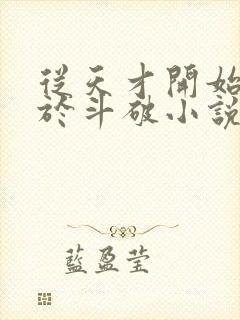 從天才開始
於斗破小說
藍盈莹